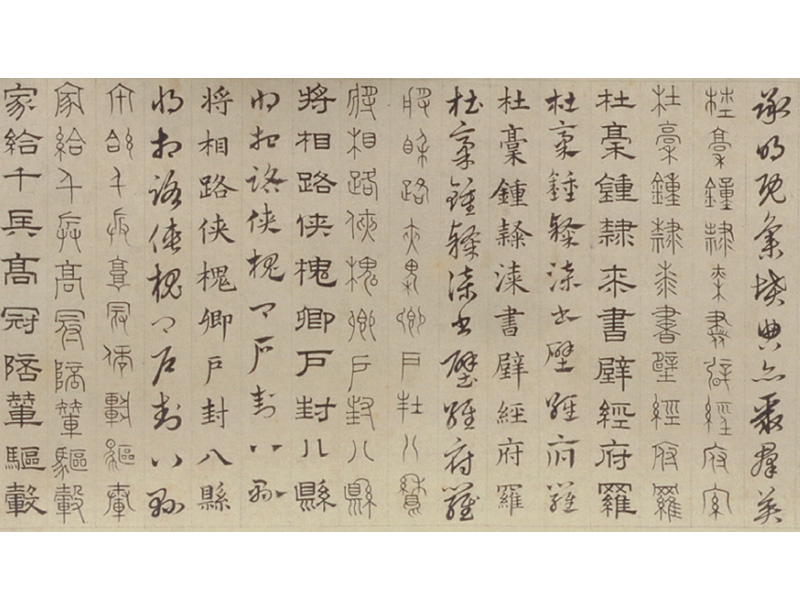 承明既集墳典亦聚群英
杜稾鍾隸漆書壁經府羅
杜稾鍾隸漆書壁經府羅
杜稾鍾隸桼書壁經府羅
杜稾鍾隸漆書壁經府羅
杜稾鍾隸漆書壁經府羅
杜稾鍾隸漆書壁經府羅
將相路俠槐卿戶封八縣
將相路俠槐卿戶封八縣
將相路俠槐卿戶封八縣
將相路俠槐卿戶封八縣
將相路俠槐卿戶封八縣
將相路俠槐卿戶封八縣
家給千兵高冠陪輦驅轂
家給千兵高冠陪輦驅轂
家給千兵高冠陪輦驅轂